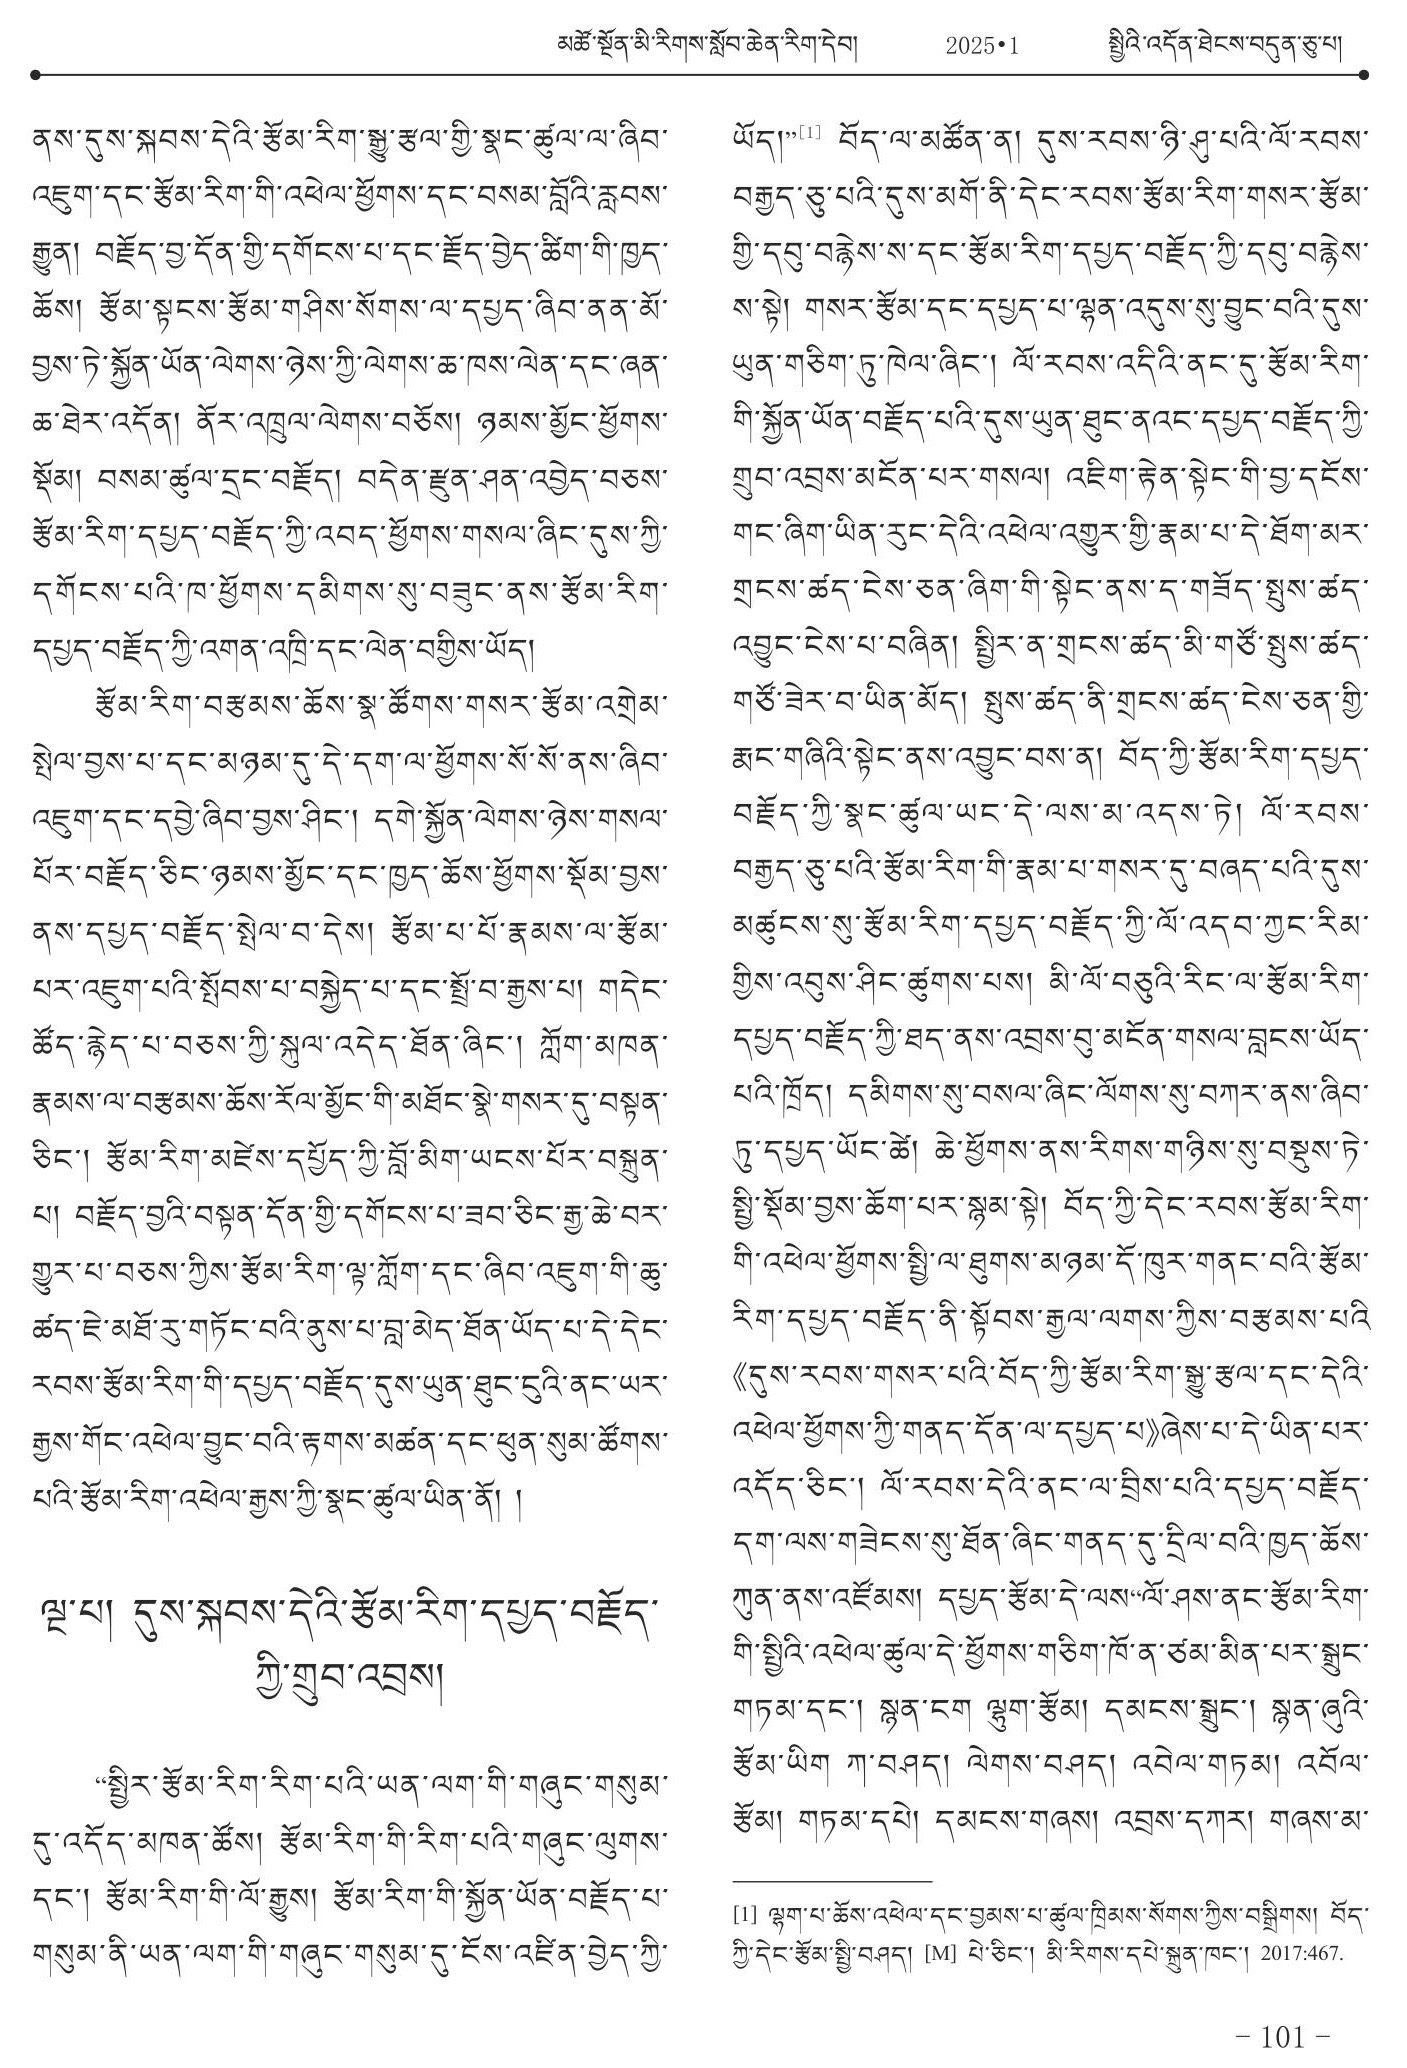 མཚོ་སྔོན་མི་རིགས་སློབ་ཆེན་རིག་དེབ། 2025•1 སྤྱིའི་འདོན་ཐེངས་བདུན་ཅུ་པ།
ནས་དུས་སྐབས་དེའི་རྩོམ་རིག་སྒྱུ་རྩལ་གྱི་སྣང་ཚུལ་ལ་ཞིབ་
འཇུག་དང་རྩོམ་རིག་གི་འཕེལ་ཕྱོགས་དང་བསམ་བློའི་རླབས་
རྒྱུན། བརྗོད་བྱ་དོན་གྱི་དགོངས་པ་དང་རྗོད་བྱེད་ཚིག་གི་ཁྱད་
ཆོས། རྩོམ་སྟངས་རྩོམ་གཤིས་སོགས་ལ་དཔྱད་ཞིབ་ནན་མོ་
བྱས་ཏེ་སྐྱོན་ཡོན་ལེགས་ཉེས་ཀྱི་ལེགས་ཆ་ཁས་ལེན་དང་ཞན་
ཆ་ཐེར་འདོན། ནོར་འཁྲུལ་ལེགས་བཅོས། ཉམས་མྱོང་ཕྱོགས་
སྡོམ། བསམ་ཚུལ་དྲང་བརྗོད། བདེན་རྫུན་ཤན་འབྱེད་བཅས་
རྩོམ་རིག་དཔྱད་བརྗོད་ཀྱི་འབད་ཕྱོགས་གསལ་ཞིང་དུས་ཀྱི་
དགོངས་པའི་ཁ་ཕྱོགས་དམིགས་སུ་བཟུང་ནས་རྩོམ་རིག་
དཔྱད་བརྗོད་ཀྱི་འགན་འཁྲི་དང་ལེན་བགྱིས་ཡོད།
རྩོམ་རིག་བརྩམས་ཆོས་སྣ་ཚོགས་གསར་རྩོམ་འགྲེམ་
སྤེལ་བྱས་པ་དང་མཉམ་དུ་དེ་དག་ལ་ཕྱོགས་སོ་སོ་ནས་ཞིབ་
འཇུག་དང་དབྱེ་ཞིབ་བྱས་ཤིང་། དགེ་སྐྱོན་ལེགས་ཉེས་གསལ་
པོར་བརྗོད་ཅིང་ཉམས་མྱོང་དང་ཁྱད་ཆོས་ཕྱོགས་སྡོམ་བྱས་
ནས་དཔྱད་བརྗོད་སྤེལ་བ་དེས། རྩོམ་པ་པོ་རྣམས་ལ་རྩོམ་
པར་འཇུག་པའི་སྤོབས་པ་བསྐྱེད་པ་དང་སྤྲོ་བ་རྒྱས་པ། གདེང་
ཚོད་རྙེད་པ་བཅས་ཀྱི་སྐུལ་འདེད་ཐོན་ཞིང་། ཀློག་མཁན་
རྣམས་ལ་བརྩམས་ཆོས་རོལ་མྱོང་གི་མཐོང་སྣེ་གསར་དུ་བསྟན་
ཅིང་། རྩོམ་རིག་མཛེས་དཔྱོད་ཀྱི་བློ་མིག་ཡངས་པོར་བསྐྲུན་
པ། བརྗོད་བྱའི་བསྟན་དོན་གྱི་དགོངས་པ་ཟབ་ཅིང་རྒྱ་ཆེ་བར་
གྱུར་པ་བཅས་ཀྱིས་རྩོམ་རིག་ལྟ་ཀློག་དང་ཞིབ་འཇུག་གི་ཆུ་
ཚད་ཇེ་མཐོ་རུ་གཏོང་བའི་ནུས་པ་བླ་མེད་ཐོན་ཡོད་པ་དེ་དེང་
རབས་རྩོམ་རིག་གི་དཔྱད་བརྗོད་དུས་ཡུན་ཐུང་ངུའི་ནང་ཡར་
རྒྱས་གོང་འཕེལ་བྱུང་བའི་རྟགས་མཚན་དང་ཕུན་སུམ་ཚོགས་
པའི་རྩོམ་རིག་འཕེལ་རྒྱས་ཀྱི་སྣང་ཚུལ་ཡིན་ནོ། །
ལྔ་པ། དུས་སྐབས་དེའི་རྩོམ་རིག་དཔྱད་བརྗོད་
ཀྱི་གྲུབ་འབྲས།
“སྤྱིར་རྩོམ་རིག་རིག་པའི་ཡན་ལག་གི་གཞུང་གསུམ་
དུ་འདོད་མཁན་ཚོས། རྩོམ་རིག་གི་རིག་པའི་གཞུང་ལུགས་
དང་། རྩོམ་རིག་གི་ལོ་རྒྱུས། རྩོམ་རིག་གི་སྐྱོན་ཡོན་བརྗོད་པ་
གསུམ་ནི་ཡན་ལག་གི་གཞུང་གསུམ་དུ་ངོས་འཛིན་བྱེད་ཀྱི་
ཡོད།”[1] བོད་ལ་མཚོན་ན། དུས་རབས་ཉི་ཤུ་པའི་ལོ་རབས་
བརྒྱད་ཅུ་པའི་དུས་མགོ་ནི་དེང་རབས་རྩོམ་རིག་གསར་རྩོམ་
གྱི་དབུ་བརྙེས་ས་དང་རྩོམ་རིག་དཔྱད་བརྗོད་ཀྱི་དབུ་བརྙེས་
ས་སྟེ། གསར་རྩོམ་དང་དཔྱད་པ་ལྷན་འདུས་སུ་བྱུང་བའི་དུས་
ཡུན་གཅིག་ཏུ་ཁེལ་ཞིང་། ལོ་རབས་འདིའི་ནང་དུ་རྩོམ་རིག་
གི་སྐྱོན་ཡོན་བརྗོད་པའི་དུས་ཡུན་ཐུང་ནའང་དཔྱད་བརྗོད་ཀྱི་
གྲུབ་འབྲས་མངོན་པར་གསལ། འཇིག་རྟེན་སྟེང་གི་བྱ་དངོས་
གང་ཞིག་ཡིན་རུང་དེའི་འཕེལ་འགྱུར་གྱི་རྣམ་པ་དེ་ཐོག་མར་
གྲངས་ཚད་ངེས་ཅན་ཞིག་གི་སྟེང་ནས་ད་གཟོད་སྤུས་ཚད་
འབྱུང་ངེས་པ་བཞིན། སྤྱིར་ན་གྲངས་ཚད་མི་གཙོ་སྤུས་ཚད་
གཙོ་ཟེར་བ་ཡིན་མོད། སྤུས་ཚད་ནི་གྲངས་ཚད་ངེས་ཅན་གྱི་
རྨང་གཞིའི་སྟེང་ནས་འབྱུང་བས་ན། བོད་ཀྱི་རྩོམ་རིག་དཔྱད་
བརྗོད་ཀྱི་སྣང་ཚུལ་ཡང་དེ་ལས་མ་འདས་ཏེ། ལོ་རབས་
བརྒྱད་ཅུ་པའི་རྩོམ་རིག་གི་རྣམ་པ་གསར་དུ་བཞད་པའི་དུས་
མཚུངས་སུ་རྩོམ་རིག་དཔྱད་བརྗོད་ཀྱི་ལོ་འདབ་ཀྱང་རིམ་
གྱིས་འབུས་ཤིང་ཚུགས་པས། མི་ལོ་བཅུའི་རིང་ལ་རྩོམ་རིག་
དཔྱད་བརྗོད་ཀྱི་ཐད་ནས་འབྲས་བུ་མངོན་གསལ་བླངས་ཡོད་
པའི་ཁྲོད། དམིགས་སུ་བསལ་ཞིང་ལོགས་སུ་བཀར་ནས་ཞིབ་
ཏུ་དཔྱད་ཡོང་ཚེ། ཆེ་ཕྱོགས་ནས་རིགས་གཉིས་སུ་བསྡུས་ཏེ་
སྤྱི་སྡོམ་བྱས་ཆོག་པར་སྙམ་སྟེ། བོད་ཀྱི་དེང་རབས་རྩོམ་རིག་
གི་འཕེལ་ཕྱོགས་སྤྱི་ལ་ཐུགས་མཉམ་དོ་ཁུར་གནང་བའི་རྩོམ་
རིག་དཔྱད་བརྗོད་ནི་སྟོབས་རྒྱལ་ལགས་ཀྱིས་བརྩམས་པའི
《དུས་རབས་གསར་པའི་བོད་ཀྱི་རྩོམ་རིག་སྒྱུ་རྩལ་དང་དེའི་
འཕེལ་ཕྱོགས་ཀྱི་གནད་དོན་ལ་དཔྱད་པ》ཞེས་པ་དེ་ཡིན་པར་
འདོད་ཅིང་། ལོ་རབས་དེའི་ནང་ལ་བྲིས་པའི་དཔྱད་བརྗོད་
དག་ལས་གཟེངས་སུ་ཐོན་ཞིང་གནད་དུ་དྲིལ་བའི་ཁྱད་ཆོས་
ཀུན་ནས་འཛོམས། དཔྱད་རྩོམ་དེ་ལས“ལོ་ཤས་ནང་རྩོམ་རིག་
གི་སྤྱིའི་འཕེལ་ཚུལ་དེ་ཕྱོགས་གཅིག་ཁོ་ན་ཙམ་མིན་པར་སྒྲུང་
གཏམ་དང་། སྙན་ངག ལྷུག་རྩོམ། དམངས་སྒྲུང་། སྙན་ཞུའི་
རྩོམ་ཡིག ཀ་བཤད། ལེགས་བཤད། འབེལ་གཏམ། འབོལ་
རྩོམ། གཏམ་དཔེ། དམངས་གཞས། འབྲས་དཀར། གཞས་མ་
[1] ལྷག་པ་ཆོས་འཕེལ་དང་བྱམས་པ་ཚུལ་ཁྲིམས་སོགས་ཀྱིས་བསྒྲིགས། བོད་
ཀྱི་དེང་རྩོམ་སྤྱི་བཤད། [M] པེ་ཅིང་། མི་རིགས་དཔེ་སྐྲུན་ཁང་། 2017:467.
– 101 –